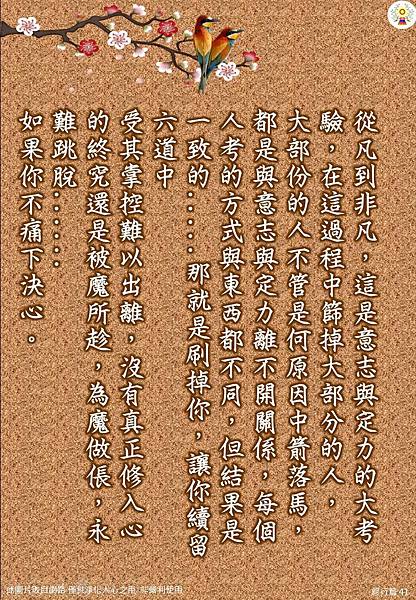 從凡到非凡，這是意志與定力的大考
驗，在這過程中篩掉大部分的人，
大部份的人不管是何原因中箭落馬，
都是與意志與定力離不開關係，每個
人考的方式與東西都不同，但結果是
一致的……那就是刷掉你，讓你續留
六道中
受其掌控難以出離，沒有真正修入心
的終究還是被魔所趁，為魔做倀，永
難跳脫……
如果你不痛下決心。
此圖片取自網路 僅供淨化人心之用 非營利使用
修行篇 41